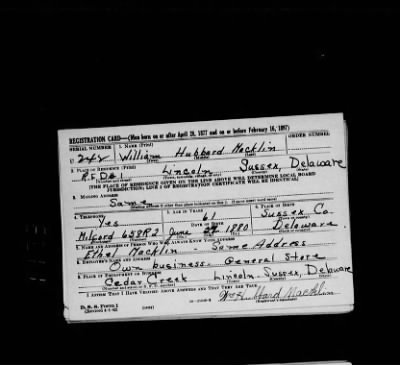 REGISTRATION CARD—(Men born on or after April 28, 1877 and on or before February 16, 1897)
SERIAL NUMBER 1. NAME (Print) ORDER NUMBER
U 242 William Hubbard Macklin
2. PLACE OF RESIDENCE (Print)
RFD#1 Lincoln Sussex, Delaware
[THE PLACE OF RESIDENCE GIVEN ON THE LINE ABOVE WILL DETERMINE LOCAL BOARD
JURISDICTION; LINE 2 OF REGISTRATION CERTIFICATE WILL BE IDENTICAL]
3. MAILING ADDRESS
Same
4. TELEPHONE 5. AGE IN YEARS 6. PLACE OF BIRTH
Yes 61 Sussex Co.
Milford 658R2 June 1880 Delaware
7. NAME AND ADDRESS OF PERSON WHO WILL ALWAYS KNOW YOUR ADDRESS
Ethel Macklin - Same Address
8. EMPLOYER'S NAME AND ADDRESS
Own business - General Store
9. PLACE OF EMPLOYMENT OR BUSINESS
Cedar Creek Lincoln Sussex, Delaware
I AFFIRM THAT I HAVE VERIFIED ABOVE ANSWERS AND THAT THEY ARE TRUE.
D. S. S. Form 1 Wm Hubbard Macklin